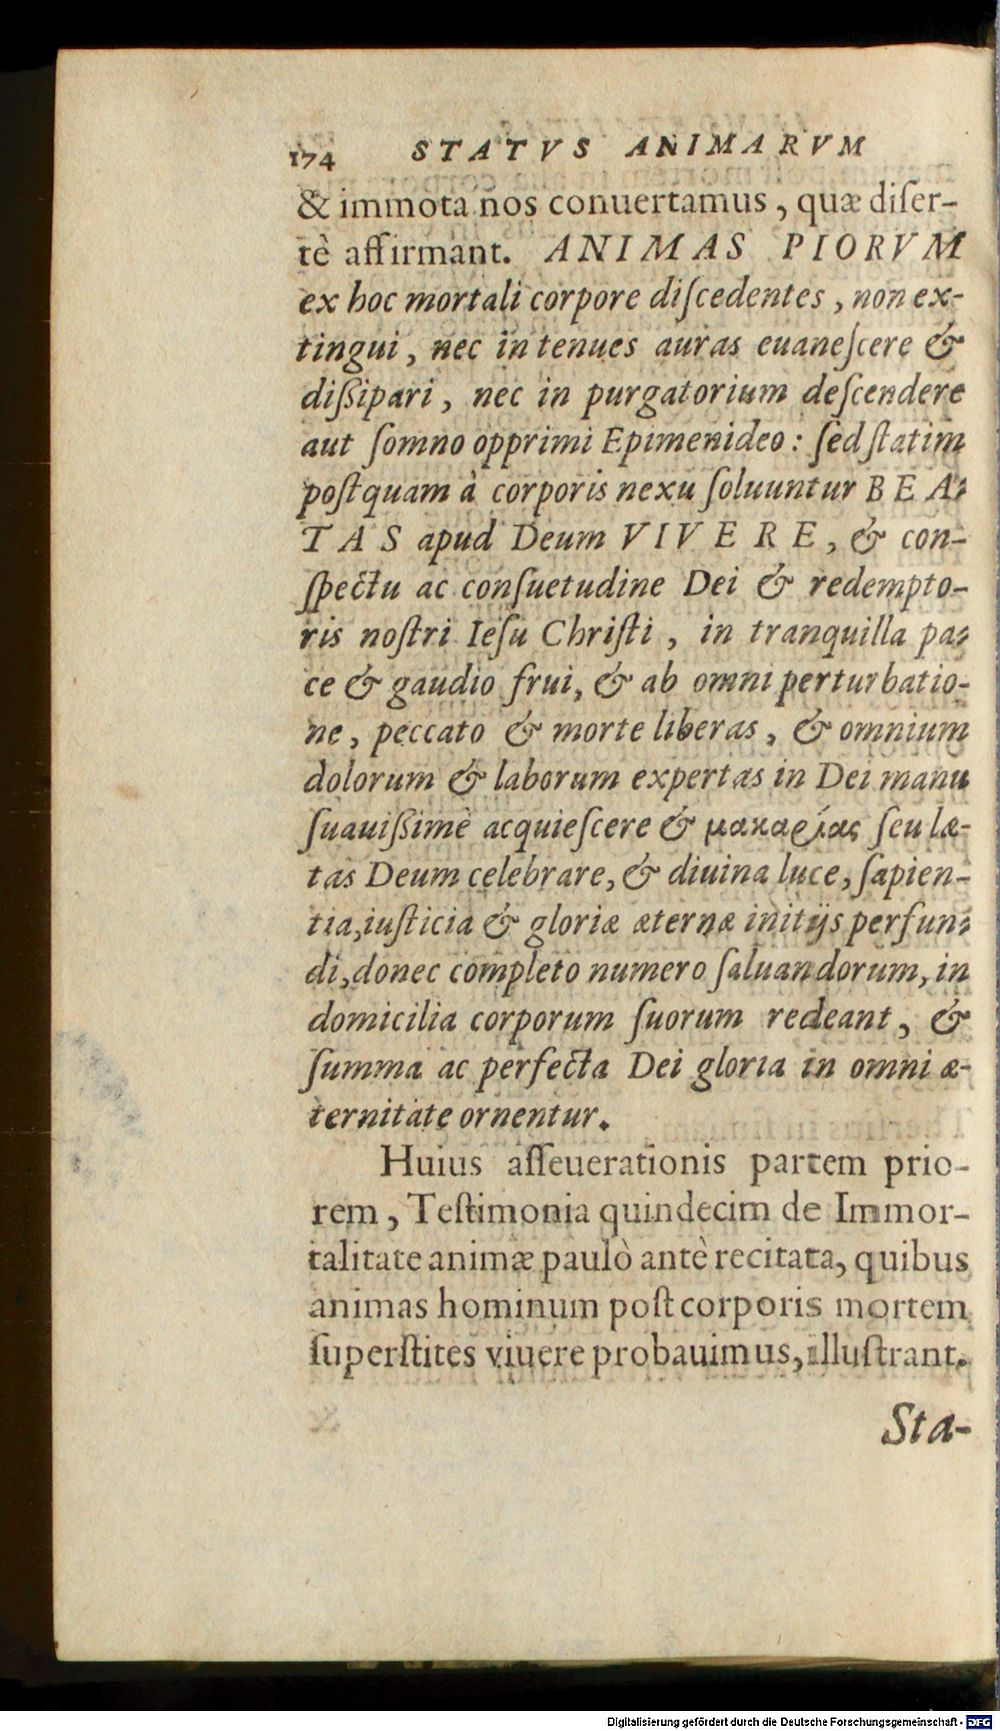 174 STATVS ANIMARVM
& immota nos conuertamus, quæ diſer-
tè affirmant. ANIMAS PIORVM
ex hoc mortali corpore diſcedentes, non ex-
tingui, nec in tenues auras euaneſcere &
diſsipari, nec in purgatorium deſcendere
aut ſomno opprimi Epimenideo: ſed ſtatim
poſtquam à corporis nexu ſoluuntur BEA-
TAS apud Deum VIVERE, & con-
ſpectu ac conſuetudine Dei & redempto-
ris noſtri Ieſu Chriſti, in tranquilla pa-
ce & gaudio frui, & ab omni perturbatio-
ne, peccato & morte liberas, & omnium
dolorum & laborum expertas in Dei manu
ſuauiſsimè acquieſcere & μακαρίας ſeu læ-
tas Deum celebrare, & diuina luce, ſapien-
tia, iuſticia & gloriæ æternæ initijs perfun-
di, donec completo numero ſaluandorum, in
domicilia corporum ſuorum redeant, &
ſumma ac perfecta Dei gloria in omni æ-
ternitate ornentur.
Huius aſſeuerationis partem prio-
rem, Teſtimonia quindecim de Immor-
talitate animæ paulò antè recitata, quibus
animas hominum poſt corporis mortem
ſuperſtites viuere probauimus, illuſtrant.
Sta-
Digitalisierung gefördert durch die Deutsche Forschungsgemeinschaft - DFG